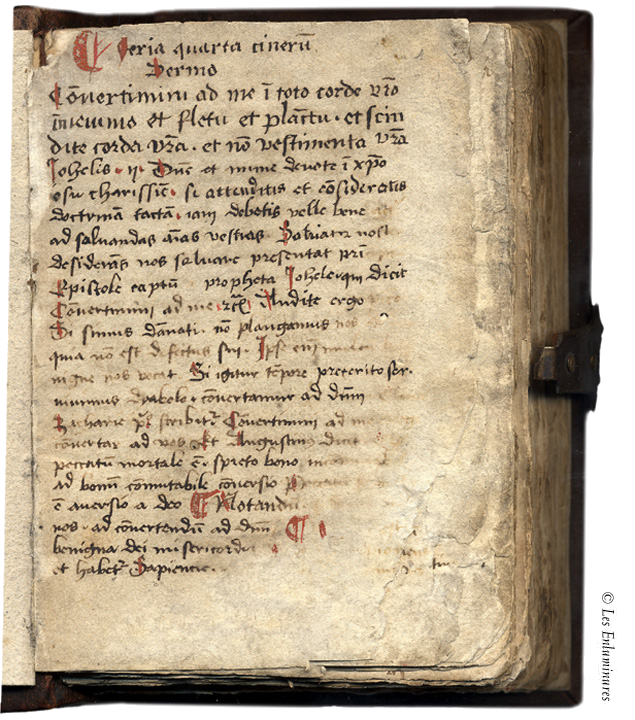 Feria quarta cinerū
Sermo
Cōuertimini ad me ī toto corde vr̄o
ī ieiunio et fletu et planctu · et scin
dite corda vr̄a · et nō vestimenta vr̄a
Johelis · ij · Dūc et nunc deuote ī xp̄o
ih̄su charissīe · si attenditis et cōsideratis
doctrinā tactā · iam debetis velle bene
ad saluandas aīas vestras · Saluator nost
desiderās nos saluare presentat prī
Epistole captū propheta Johele qui dicit
Cōuertimini ad me · Audite ergo
Si simus dānati · nō plangamus nos
quia nō est defectus sui · Ipse eni
nigne nos vocat Si igitur tēpore preterito ser
uiuimus dyabolo · cōuertamur ad dn̄m
Zacharie scribitr Cōuertimini ad me
cōuertar ad vos Et Augustinus dicit
peccatū mortale ē · spreto bono
ad bonū cōmutabile cōuersio
ē auersio a deo Notandū
nos · ad cōuertendū ad dn̄m
benigna dei misericordia
et habetr Sapiencie ·
© Les Enluminures